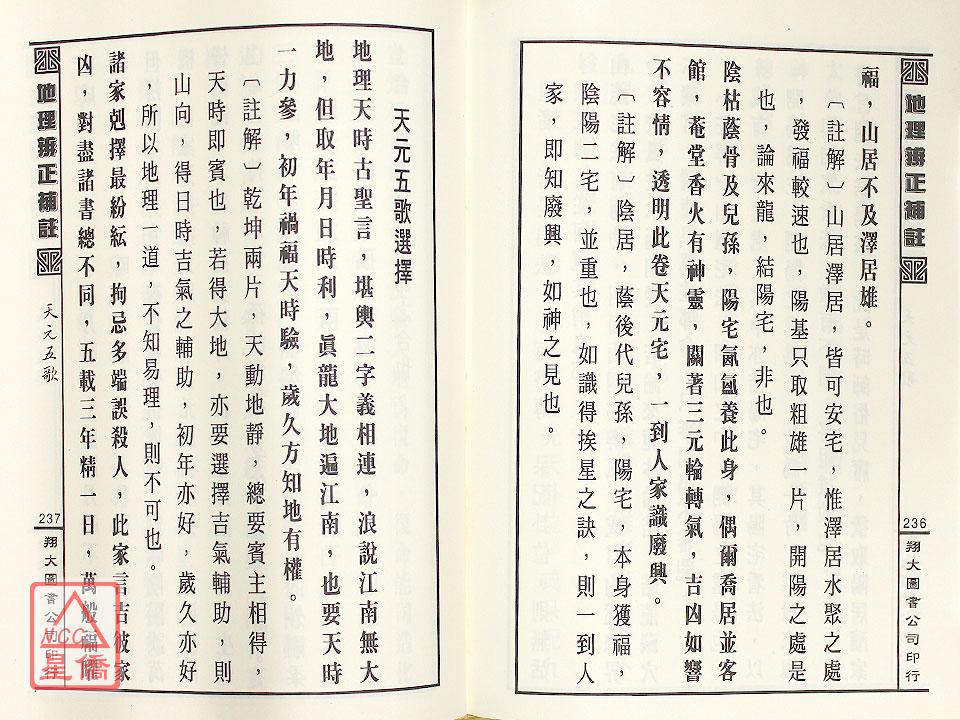 地理辨正補註
236
翔大圖書公司印行
福，山居不及澤居雄。
〔註解〕山居澤居，皆可安宅，惟澤居水聚之處
，發福較速也，陽基只取粗雄一片，開陽之處是
也，論來龍，結陽宅，非也。
陰枯蔭骨及兒孫，陽宅氤氳養此身，偶爾喬居並客
館，菴堂香火有神靈，關著三元輪轉氣，吉凶如響
不容情，透明此卷天元宅，一到人家識廢興。
〔註解〕陰居，蔭後代兒孫，陽宅，本身獲福，
陰陽二宅，並重也，如識得挨星之訣，則一到人
家，即知廢興，如神之見也。
天元五歌選擇
地理天時古聖言，堪輿二字義相連，浪說江南無大
地，但取年月日時利，眞龍大地遍江南，也要天時
一力參，初年禍福天時驗，歲久方知地有權。
〔註解〕乾坤兩片，天動地靜，總要賓主相得，
天時即賓也，若得大地，亦要選擇吉氣輔助，則
山向，得日時吉氣之輔助，初年亦好，歲久亦好
，所以地理一道，不知易理，則不可也。
諸家剋擇最紛紜，拘忌多端誤殺人，此家言吉彼家
凶，對盡諸書總不同，五載三年精一日，萬般福耀
地理辨正補註
天元五歌
237
翔大圖書公司印行
NCC
皇僑